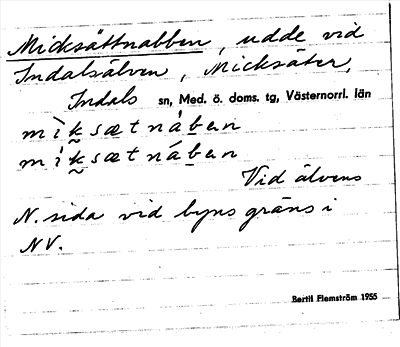 Micksättnabben, udde vid
Indalsälven, Micksäter,
Indals sn, Med. ö. doms. tg, Västernorrl. län
mìksætnàbɐn
míksætnábɐn
Vid älvens
N. sida vid byns gräns i
NV.
Bertil Flemström 1955